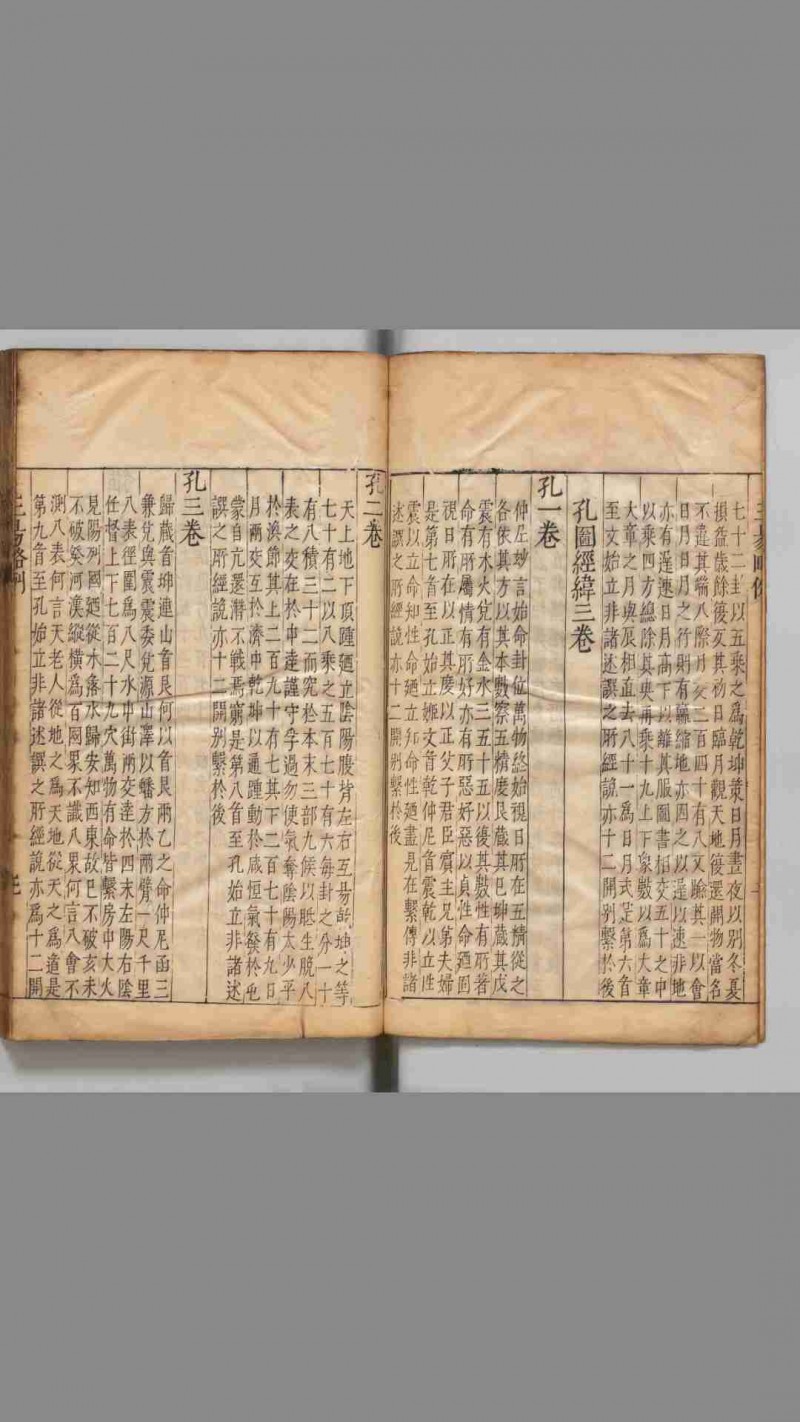 七十二卦以五乘之爲乾坤策日月晝夜以別冬夏
損益歲餘後亥其初日臨月觀天地後還開物當名
不盡其端八際月交二百四十有八又踰其一以會
日月日月之行則有羸縮地亦因之以遲以速非地
亦有遲速日月高下以離其脤圖書相交五十之中
以乘四方總除其央再乘十九上下象數以爲大章
大章之月與辰相直去八十一爲日月式定第六首
至文始立非諸述譔之所經說亦十二開别繫於後
孔圖經緯三卷
孔一卷
仲尼玅言始命卦位萬物終始視日所在五精從之
各依其方以其本數察五精度艮蔵其巴坤蔵其戊
震有木火兌有金水三五十五以復其數性有所著
命有所屬情有所好亦有所惡好惡以貞性命廼囙
視日所在以正其度以正父子君臣賓主兄第夫婦
是第七首至孔始立姬文首乾仲尼首震乾以立性
震以立命知性命廼立知命性廼盡見在繫傳非諸
述譔之所經說亦十二開别繫於後
孔二卷
天上地下頂踵廼立陰陽腹背左右互易乾坤之等
七十有二以八乘之五百七十有六每卦之分一十
有八積三十二而究於本末三部九候以胜生脫八
表之交在於中逵謹守孚過勿使氣奪陰陽太少平
於渙節其上二百九十有七其下二百七十有九日
月兩交互於濟中乾坤以通踵動於咸恒氣發於屯
蒙自亢還潛不戰焉窮是第八首至孔始立非諸述
譔之所經說亦十二開别繫於後
孔三卷
歸蔵首坤連山首艮何以首艮兩乙之命仲尼函三
兼兌與震震委兌源山澤以蟠方於兩臂一尺千里
八表徑圍爲八尺水中街兩交逵於四末左陽右陰
任督上下七百二十九穴萬物有命皆繫房中大火
見陽列國廼從水落水歸安知西東故巳不破亥未
不破癸河漢縱橫爲百网果不讖八果何言八會不
測八表何言天老人從地之爲天地從天之爲道是
第九首至孔始立非諸述譔之所經說亦爲十二開